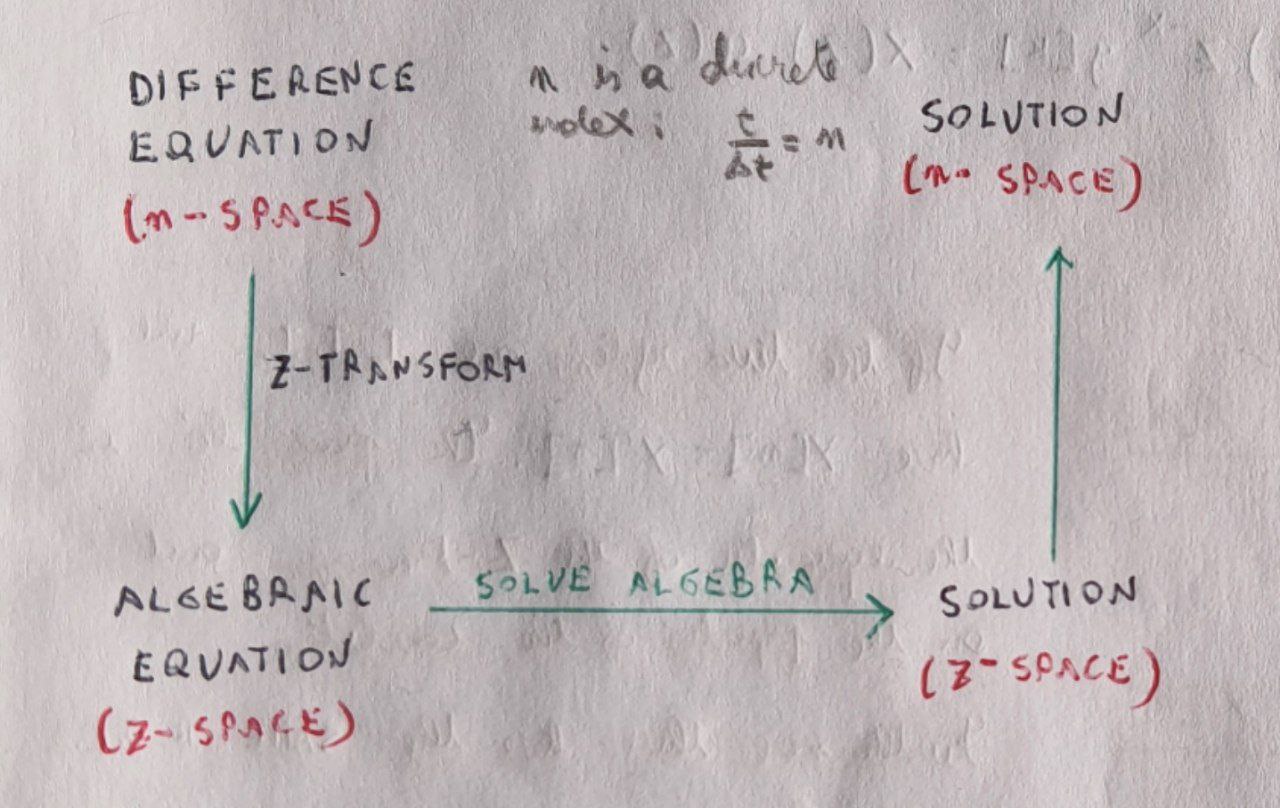 DIFFERENCE
EQUATION
(n-SPACE)
n is a discrete
index:
t/Δt = n
SOLUTION
(n-SPACE)
Z-TRANSFORM
ALGEBRAIC
EQUATION
(Z-SPACE)
SOLVE ALGEBRA
SOLUTION
(Z-SPACE)